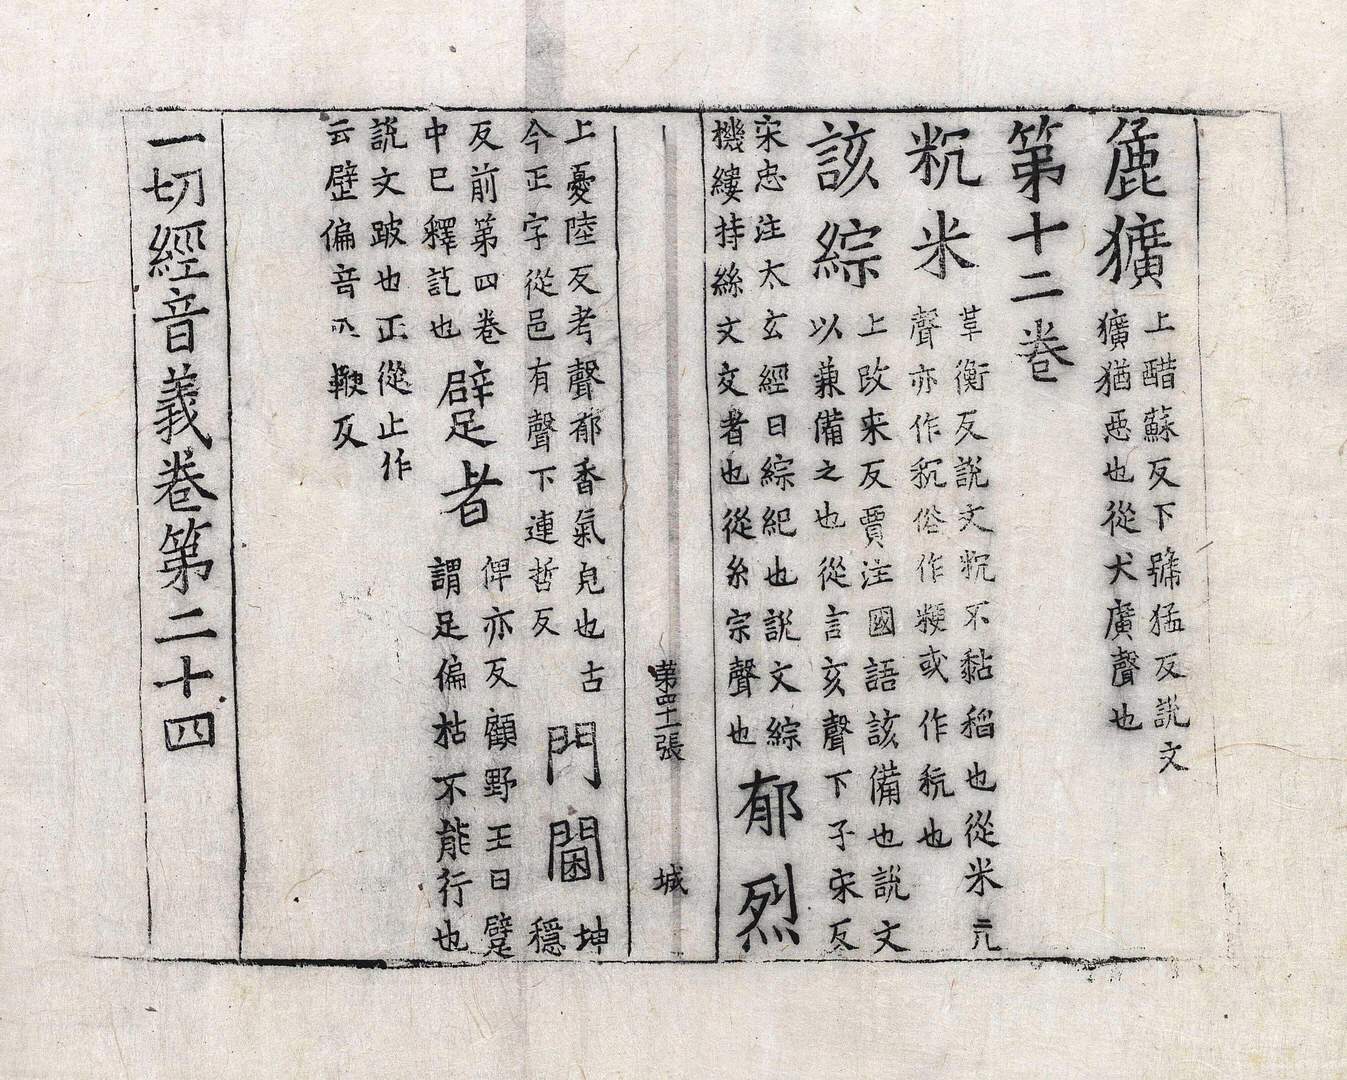 麁獷
上醋蘇反下號猛反說文
獷猶惡也從犬廣聲也
第十二卷
粇米
革衡反說文粇不黏稻也從米亢
聲亦作秔俗作粳或作秔也
該綜
上改来反賈注國語該備也說文
以兼備之也從言亥聲下子宋反
宋忠注太玄經曰綜紀也說文綜
機縷持絲文交者也從糸宗聲也
郁烈
第四十二張 城
上憂陸反考聲郁香氣皃也古
今正字從邑有聲下連哲反
門閫
坤穩
反前第四卷
中已釋訖也
躄者
俾亦反顧野王曰躄
謂足偏枯不能行也
說文跛也正從止作
云壁偏音ㄆ鞭反
一切經音義卷第二十四